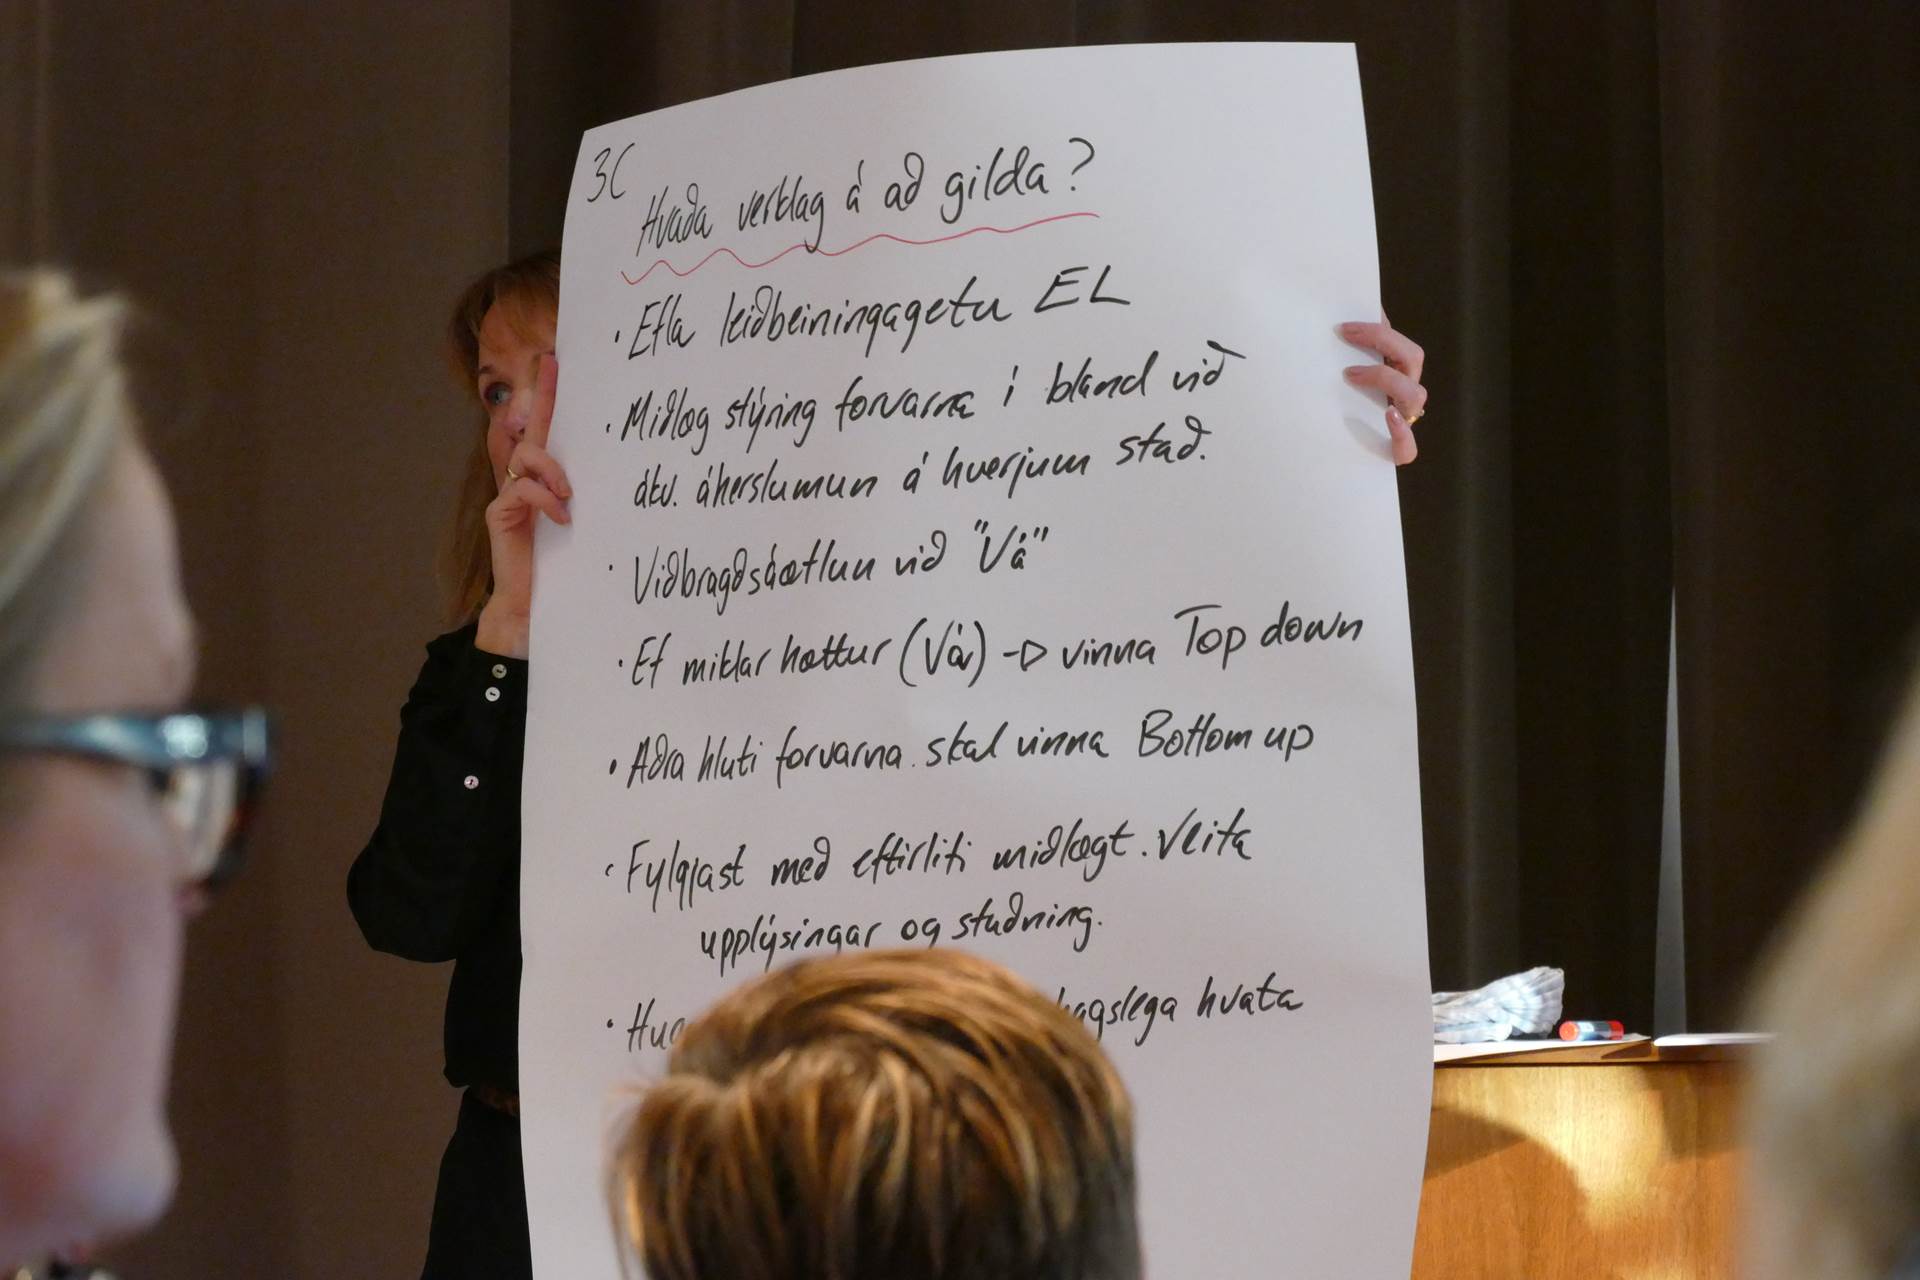 3C
Hvaða verklag á að gilda?
• Efla leiðbeiningagetu EL
• Miðlæg stýring forvarna í bland við
ákv. áherslumun á hverjum stað.
• Viðbragðsáætlun við "Vá"
• Ef miklar hættur (Vá) → vinna Top down
• Aðra hluti forvarna skal vinna Bottom up
• Fylgjast með eftirliti miðlægt. Veita
upplýsingar og stuðning.
• hvata